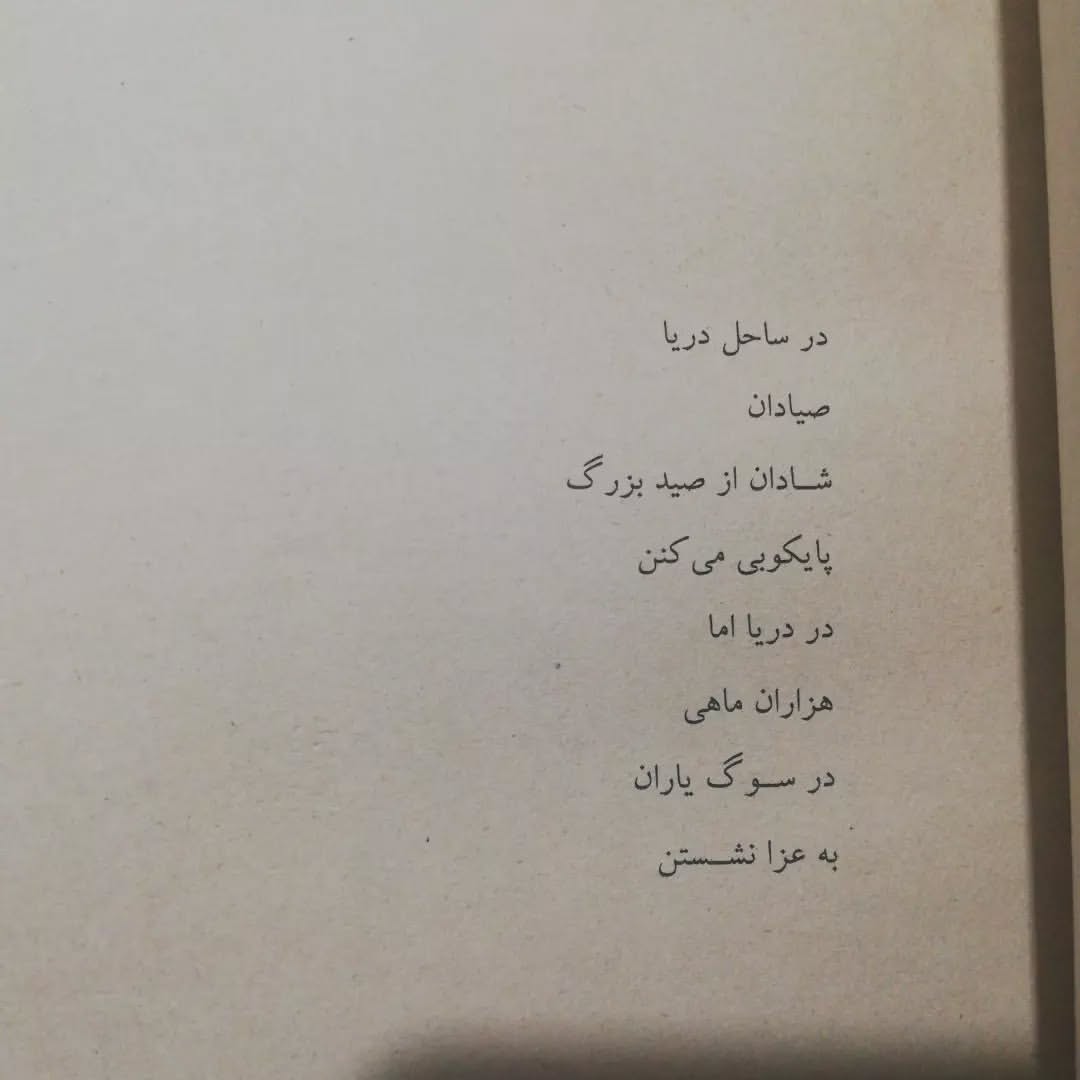 در ساحل دریا
صیادان
شادان از صید بزرگ
پایکوبی می‌کنن
در دریا اما
هزاران ماهی
در سوگ یاران
به عزا نشستن